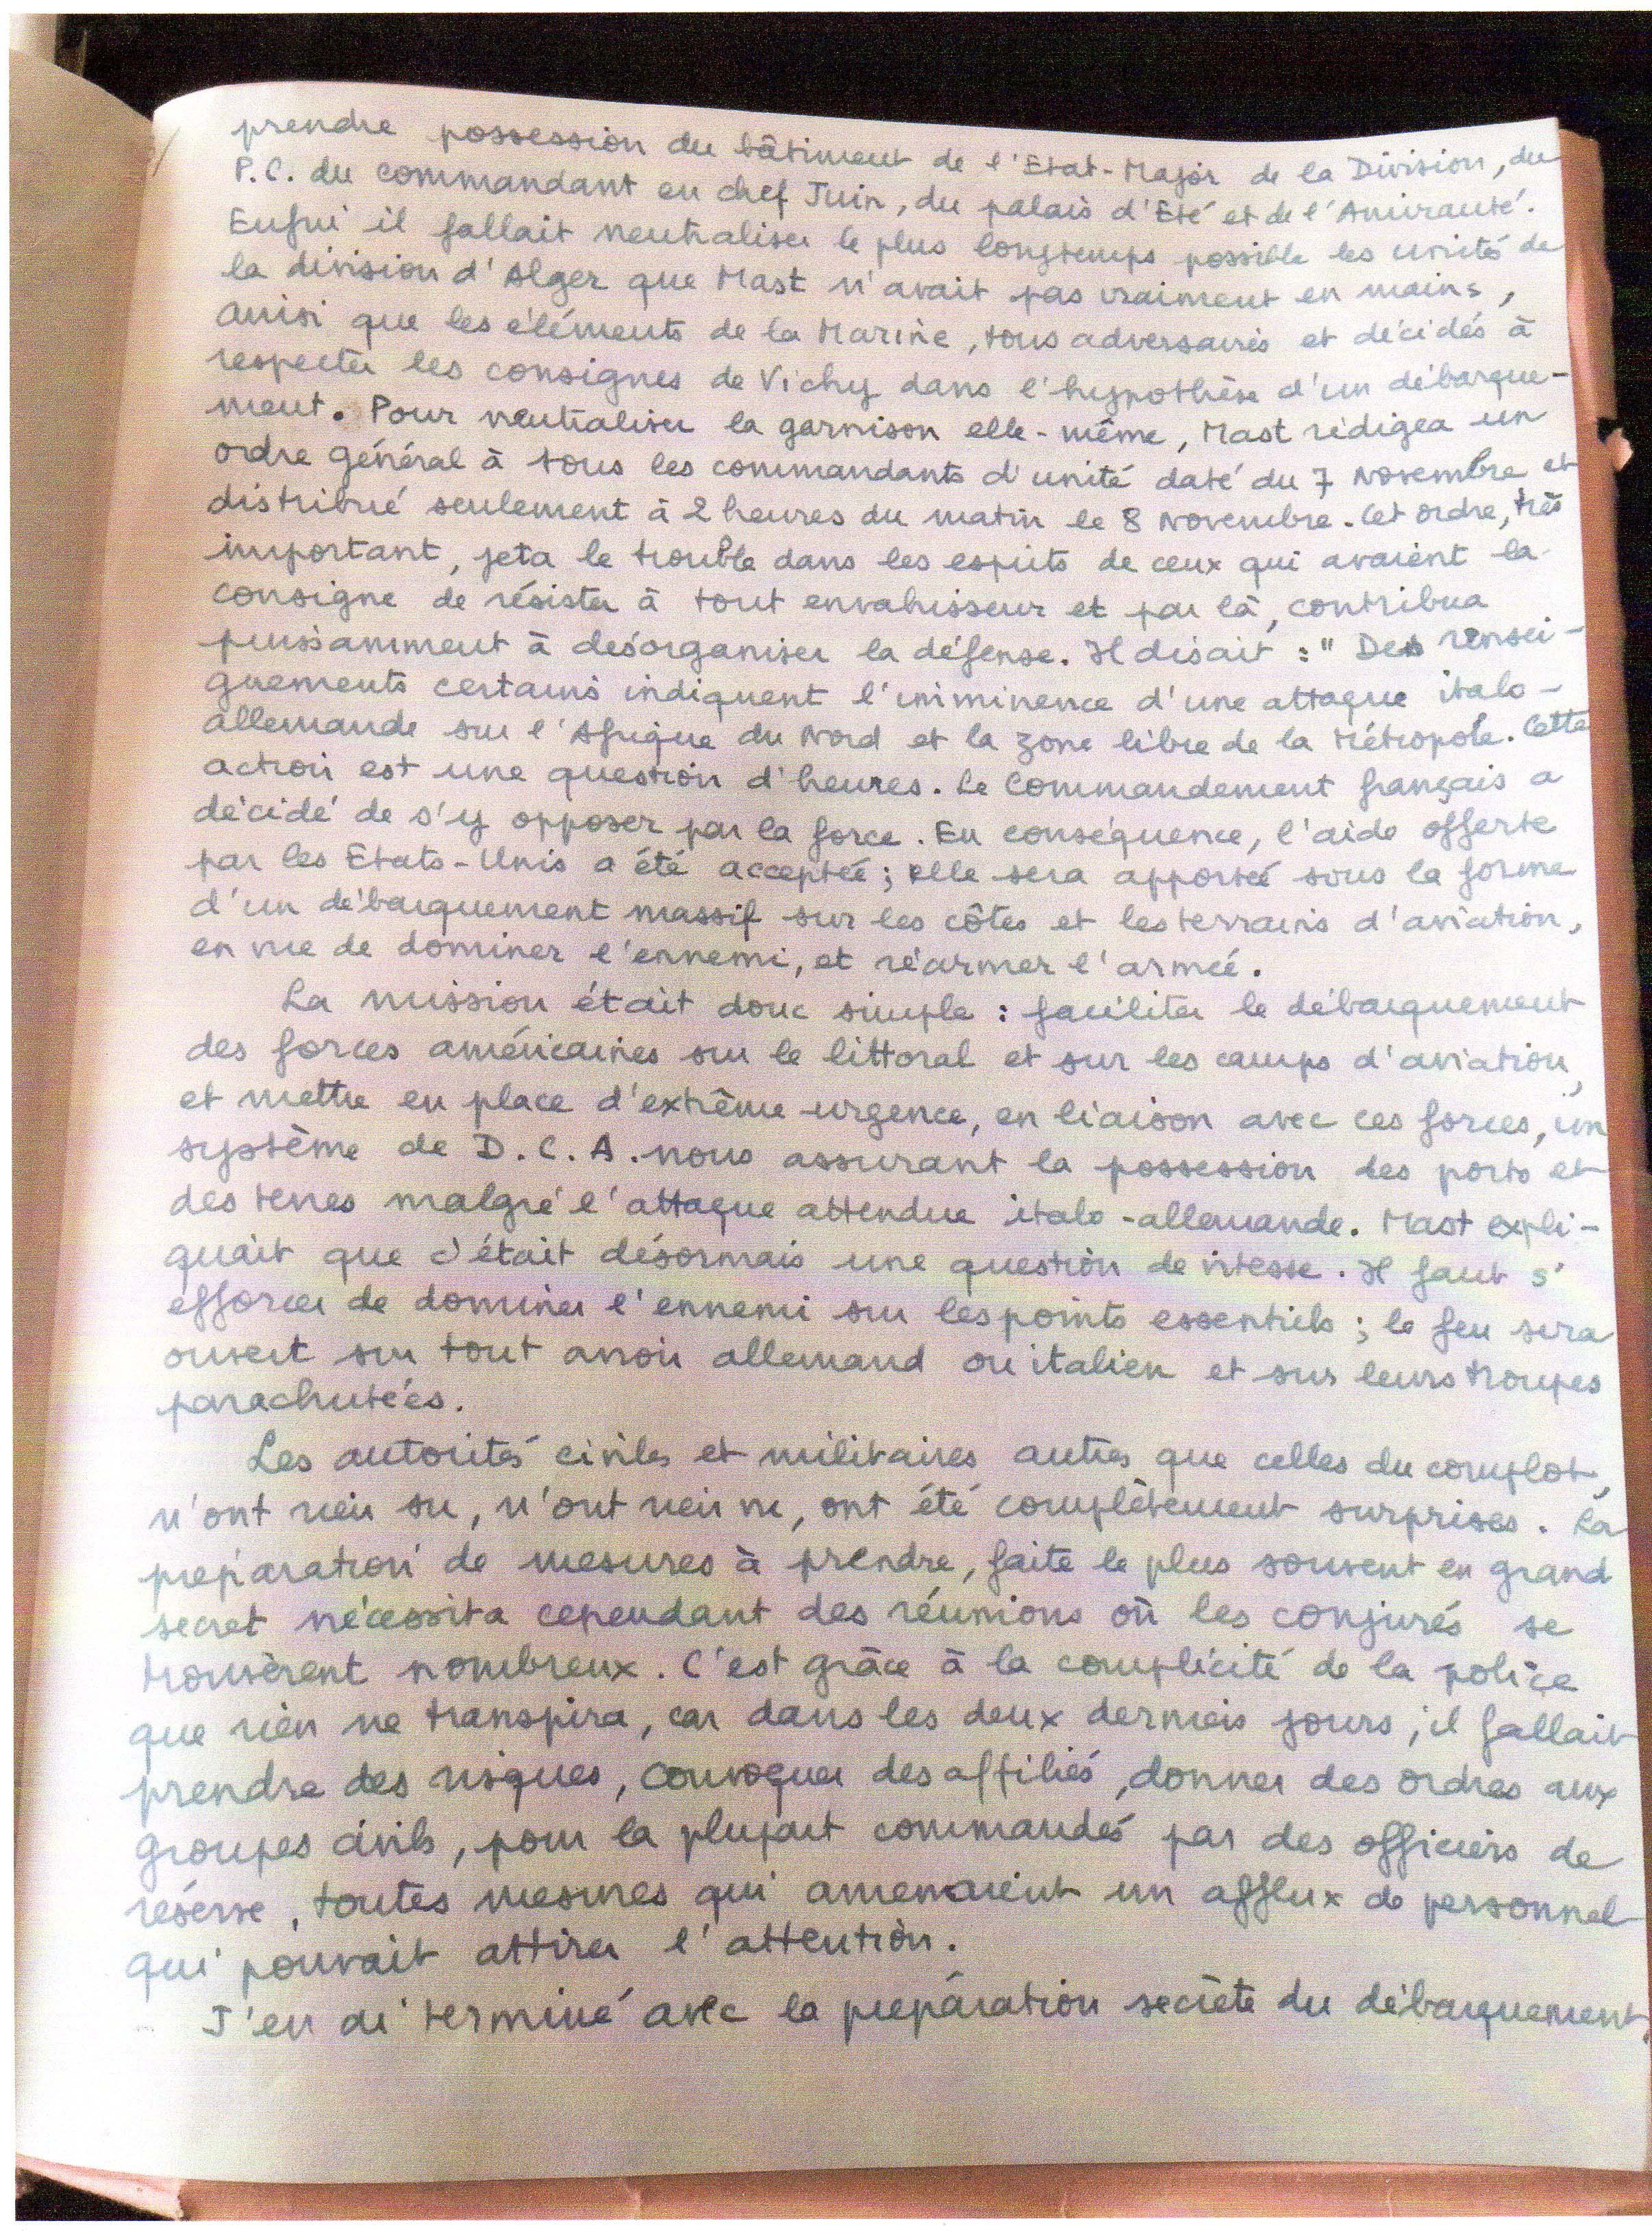 prendre possession du bâtiment de l'Etat-Major de la Division, du
P.C. du commandant en chef Juin, du palais d'Eté et de l'Amirauté.
Enfin il fallait neutraliser le plus longtemps possible les unités de
la division d'Alger que Mast n'avait pas vraiment en mains,
ainsi que les éléments de la Marine, tous adversaires et décidés à
respecter les consignes de Vichy dans l'hypothèse d'un débarque-
ment. Pour neutraliser la garnison elle-même, Mast rédigea un
ordre général à tous les commandants d'unité daté du 7 Novembre et
distribué seulement à 2 heures du matin le 8 Novembre. Cet ordre, très
important, jeta le trouble dans les esprits de ceux qui avaient la
consigne de résister à tout envahisseur et par là, contribua
puissamment à désorganiser la défense. Il disait : " Des rensei-
gnements certains indiquent l'imminence d'une attaque italo-
allemande sur l'Afrique du Nord et la zone libre de la Métropole. Cette
action est une question d'heures. Le Commandement français a
décidé de s'y opposer par la force. En conséquence, l'aide offerte
par les Etats-Unis a été acceptée ; elle sera apportée sous la forme
d'un débarquement massif sur les côtes et les terrains d'aviation,
en vue de dominer l'ennemi, et réarmer l'armée.
La mission était donc simple : faciliter le débarquement
des forces américaines sur le littoral et sur les camps d'aviation,
et mettre en place d'extrême urgence, en liaison avec ces forces, un
système de D.C.A. nous assurant la possession des ports et
des terres malgré l'attaque attendue italo-allemande. Mast expli-
quait que c'était désormais une question de vitesse. Il faut s'
efforcer de dominer l'ennemi sur les points essentiels ; le feu sera
ouvert sur tout avion allemand ou italien et sur leurs troupes
parachutées.
Les autorités civiles et militaires autres que celles du complot,
n'ont rien su, n'ont rien vu, ont été complètement surprises. La
préparation de mesures à prendre, faite le plus souvent en grand
secret nécessita cependant des réunions où les conjurés se
trouvèrent nombreux. C'est grâce à la complicité de la police
que rien ne transpira, car dans les deux derniers jours, il fallait
prendre des risques, convoquer des affiliés, donner des ordres aux
groupes civils, pour la plupart commandés par des officiers de
réserve, toutes mesures qui amenaient un afflux de personnel
qui pouvait attirer l'attention.
J'en ai terminé avec la préparation secrète du débarquement.